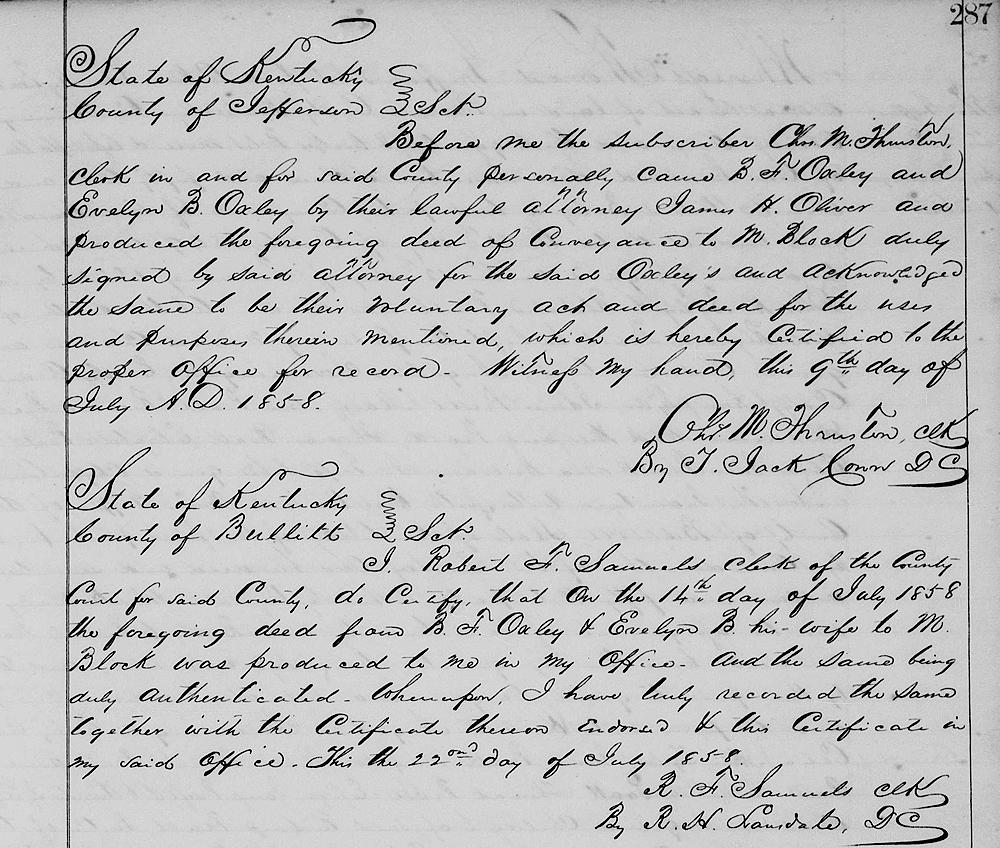 287
State of Kentucky
County of Jefferson } Sct.
Before me the subscriber Chs. M. Thruston,
clerk in and for said County personally came B. F. Oxley and
Evelyn B. Oxley by their lawful attorney James H. Oliver and
produced the foregoing deed of Conveyance to M. Block duly
signed by said attorney for the said Oxley's and acknowledged
the same to be their voluntary act and deed for the uses
and purposes therein mentioned, which is hereby Certified to the
proper office for record - Witness my hand, this 9th day of
July A.D. 1858.
Chs. M. Thruston, clk
By T. Jack Conn DC
State of Kentucky
County of Bullitt } Sct.
I. Robert F. Samuels clerk of the County
Court for said County, do Certify, that on the 14th day of July 1858
the foregoing deed from B. F. Oxley & Evelyn B. his wife to M.
Block was produced to me in my office - and the same being
duly authenticated - Whereupon, I have truly recorded the same
together with the Certificate thereon Endorsed & this Certificate in
my said office. This the 22ond day of July 1858.
R. F. Samuels clk
By R. H. Lansdale, DC